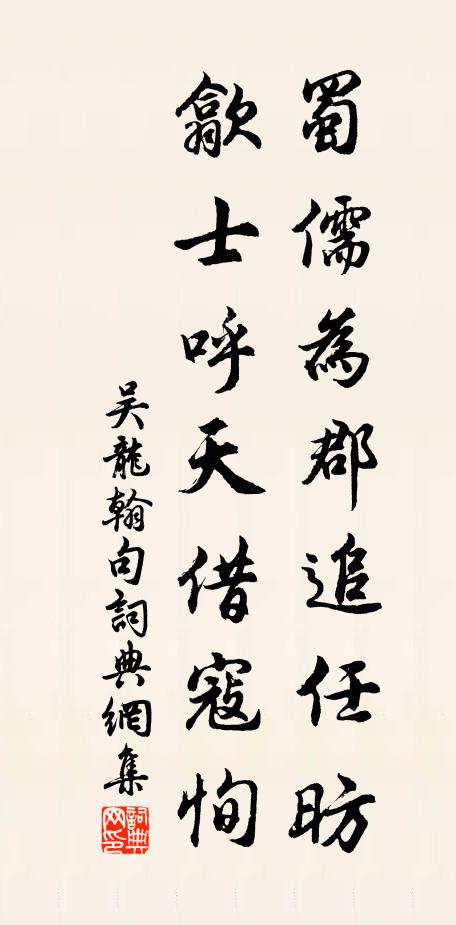 蜀儒為郡追任昉
歙士呼天借寇恂
吴龍翰句詞典網集
詞典網印